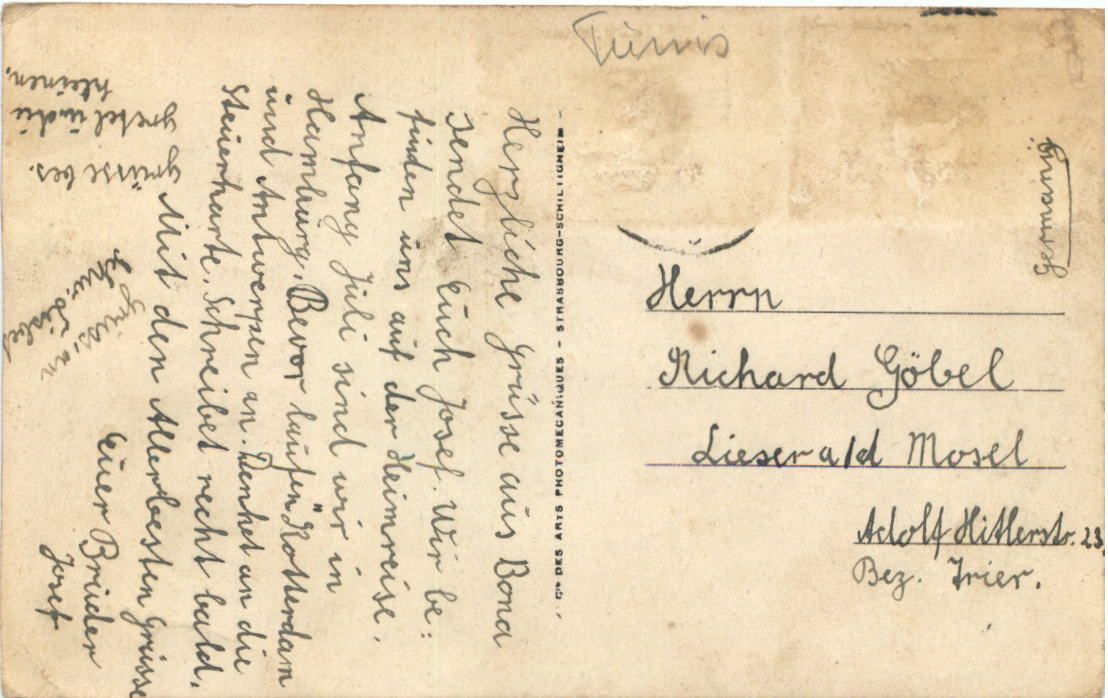 Tunis
Germany
Herrn
Richard Göbel
Lieser a/d Mosel
Adolf Hitlerstr. 23.
Bez. Trier.
Cie DES ARTS PHOTOMECANIQUES - STRASBOURG-SCHILTIGHEIM -
Herzliche Grüsse aus Bona
sendet Euch Josef. Wir be:
finden uns auf der Heimreise.
Anfang Jüli sind wir in
Hamburg. Bevor laufen Rotterdam
und Antwerpen an. Denket an die
Steuerkarte. Schreibet recht bald.
Mit den Allerbesten Grüsse
Euer Brüder
Josef
grüsse bes.
gretel und die
kleinen.
grüss. an